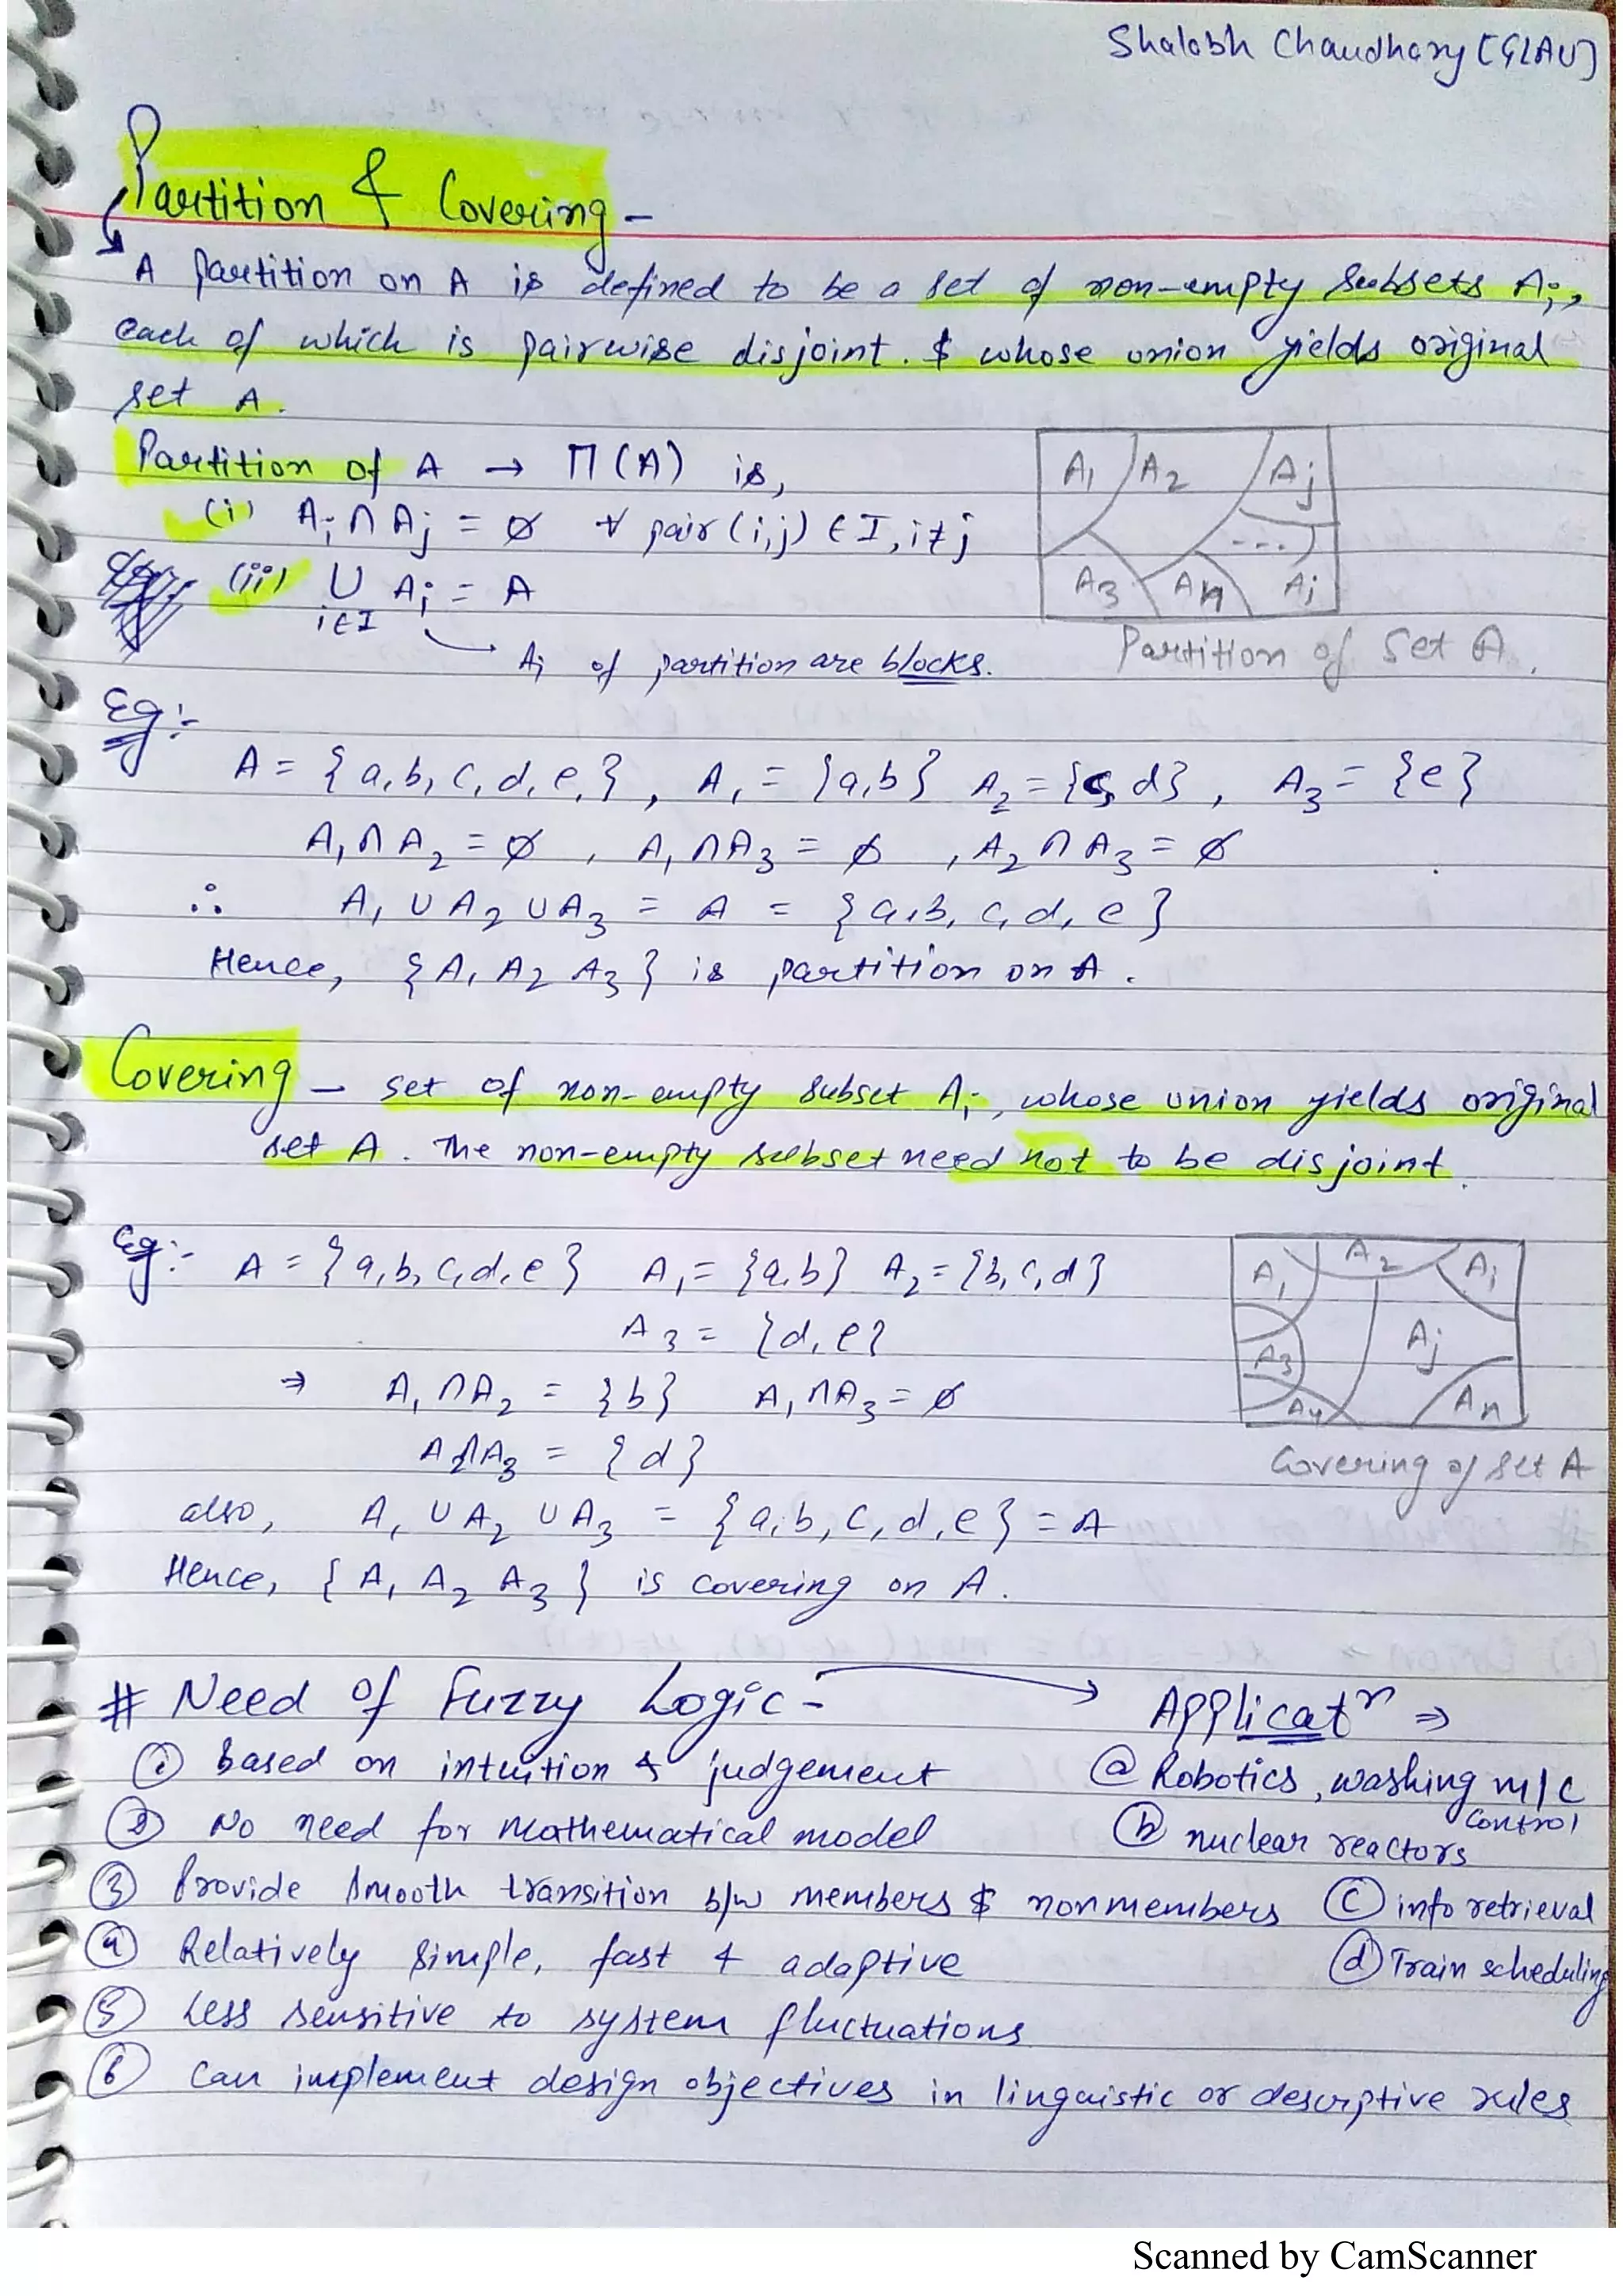 Shalabh Chaudhary [GLAU]
Partition & Covering -
A partition on A is defined to be a set of non-empty subsets Ai,
each of which is pairwise disjoint. & whose union yields original
set A.
Partition of A → Π(A) is,
(i) Ai ∩ Aj = ∅ ∀ pair (i,j) ∈ I, i≠j
(ii) ∪ Ai = A
i∈I
Ai of partition are blocks.
A1 A2 Aj
---
A3 An Ai
Partition of Set A.
Eg:-
A = {a,b,c,d,e,}, A1 = {a,b} A2 = {c, d}, A3 = {e}
A1 ∩ A2 = ∅, A1 ∩ A3 = ∅, A2 ∩ A3 = ∅
∴ A1 ∪ A2 ∪ A3 = A = {a,b,c,d,e}
Hence, {A1 A2 A3} is partition on A.
Covering - set of non-empty subset Ai, whose union yields original
set A. The non-empty subset need not to be disjoint.
Eg:- A = {a,b,c,d,e} A1 = {a,b} A2 = {b,c,d}
A3 = {d,e}
⇒ A1 ∩ A2 = {b} A1 ∩ A3 = ∅
A2 ∩ A3 = {d}
A1 A2 Ai
Aj
A3
A4 An
Covering of set A
also, A1 ∪ A2 ∪ A3 = {a,b,c,d,e} = A
Hence, {A1 A2 A3} is covering on A.
# Need of Fuzzy Logic -
① based on intuition & judgement
② No need for mathematical model
③ Provide smooth transition b/w members & nonmembers
④ Relatively simple, fast & adaptive
⑤ Less sensitive to system fluctuations
⑥ Can implement design objectives in linguistic or descriptive rules
Applicatn ⇒
ⓐ Robotics, washing m/c
control
ⓑ nuclear reactors
ⓒ info retrieval
ⓓ Train scheduling
Scanned by CamScanner